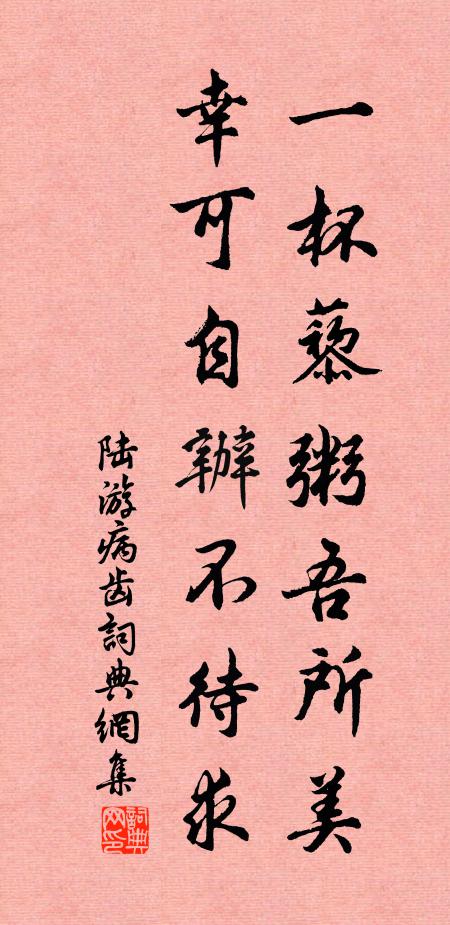 一杯藜粥吾所美
幸可自辦不待求
陆游病齿詞典網集
詞典网印